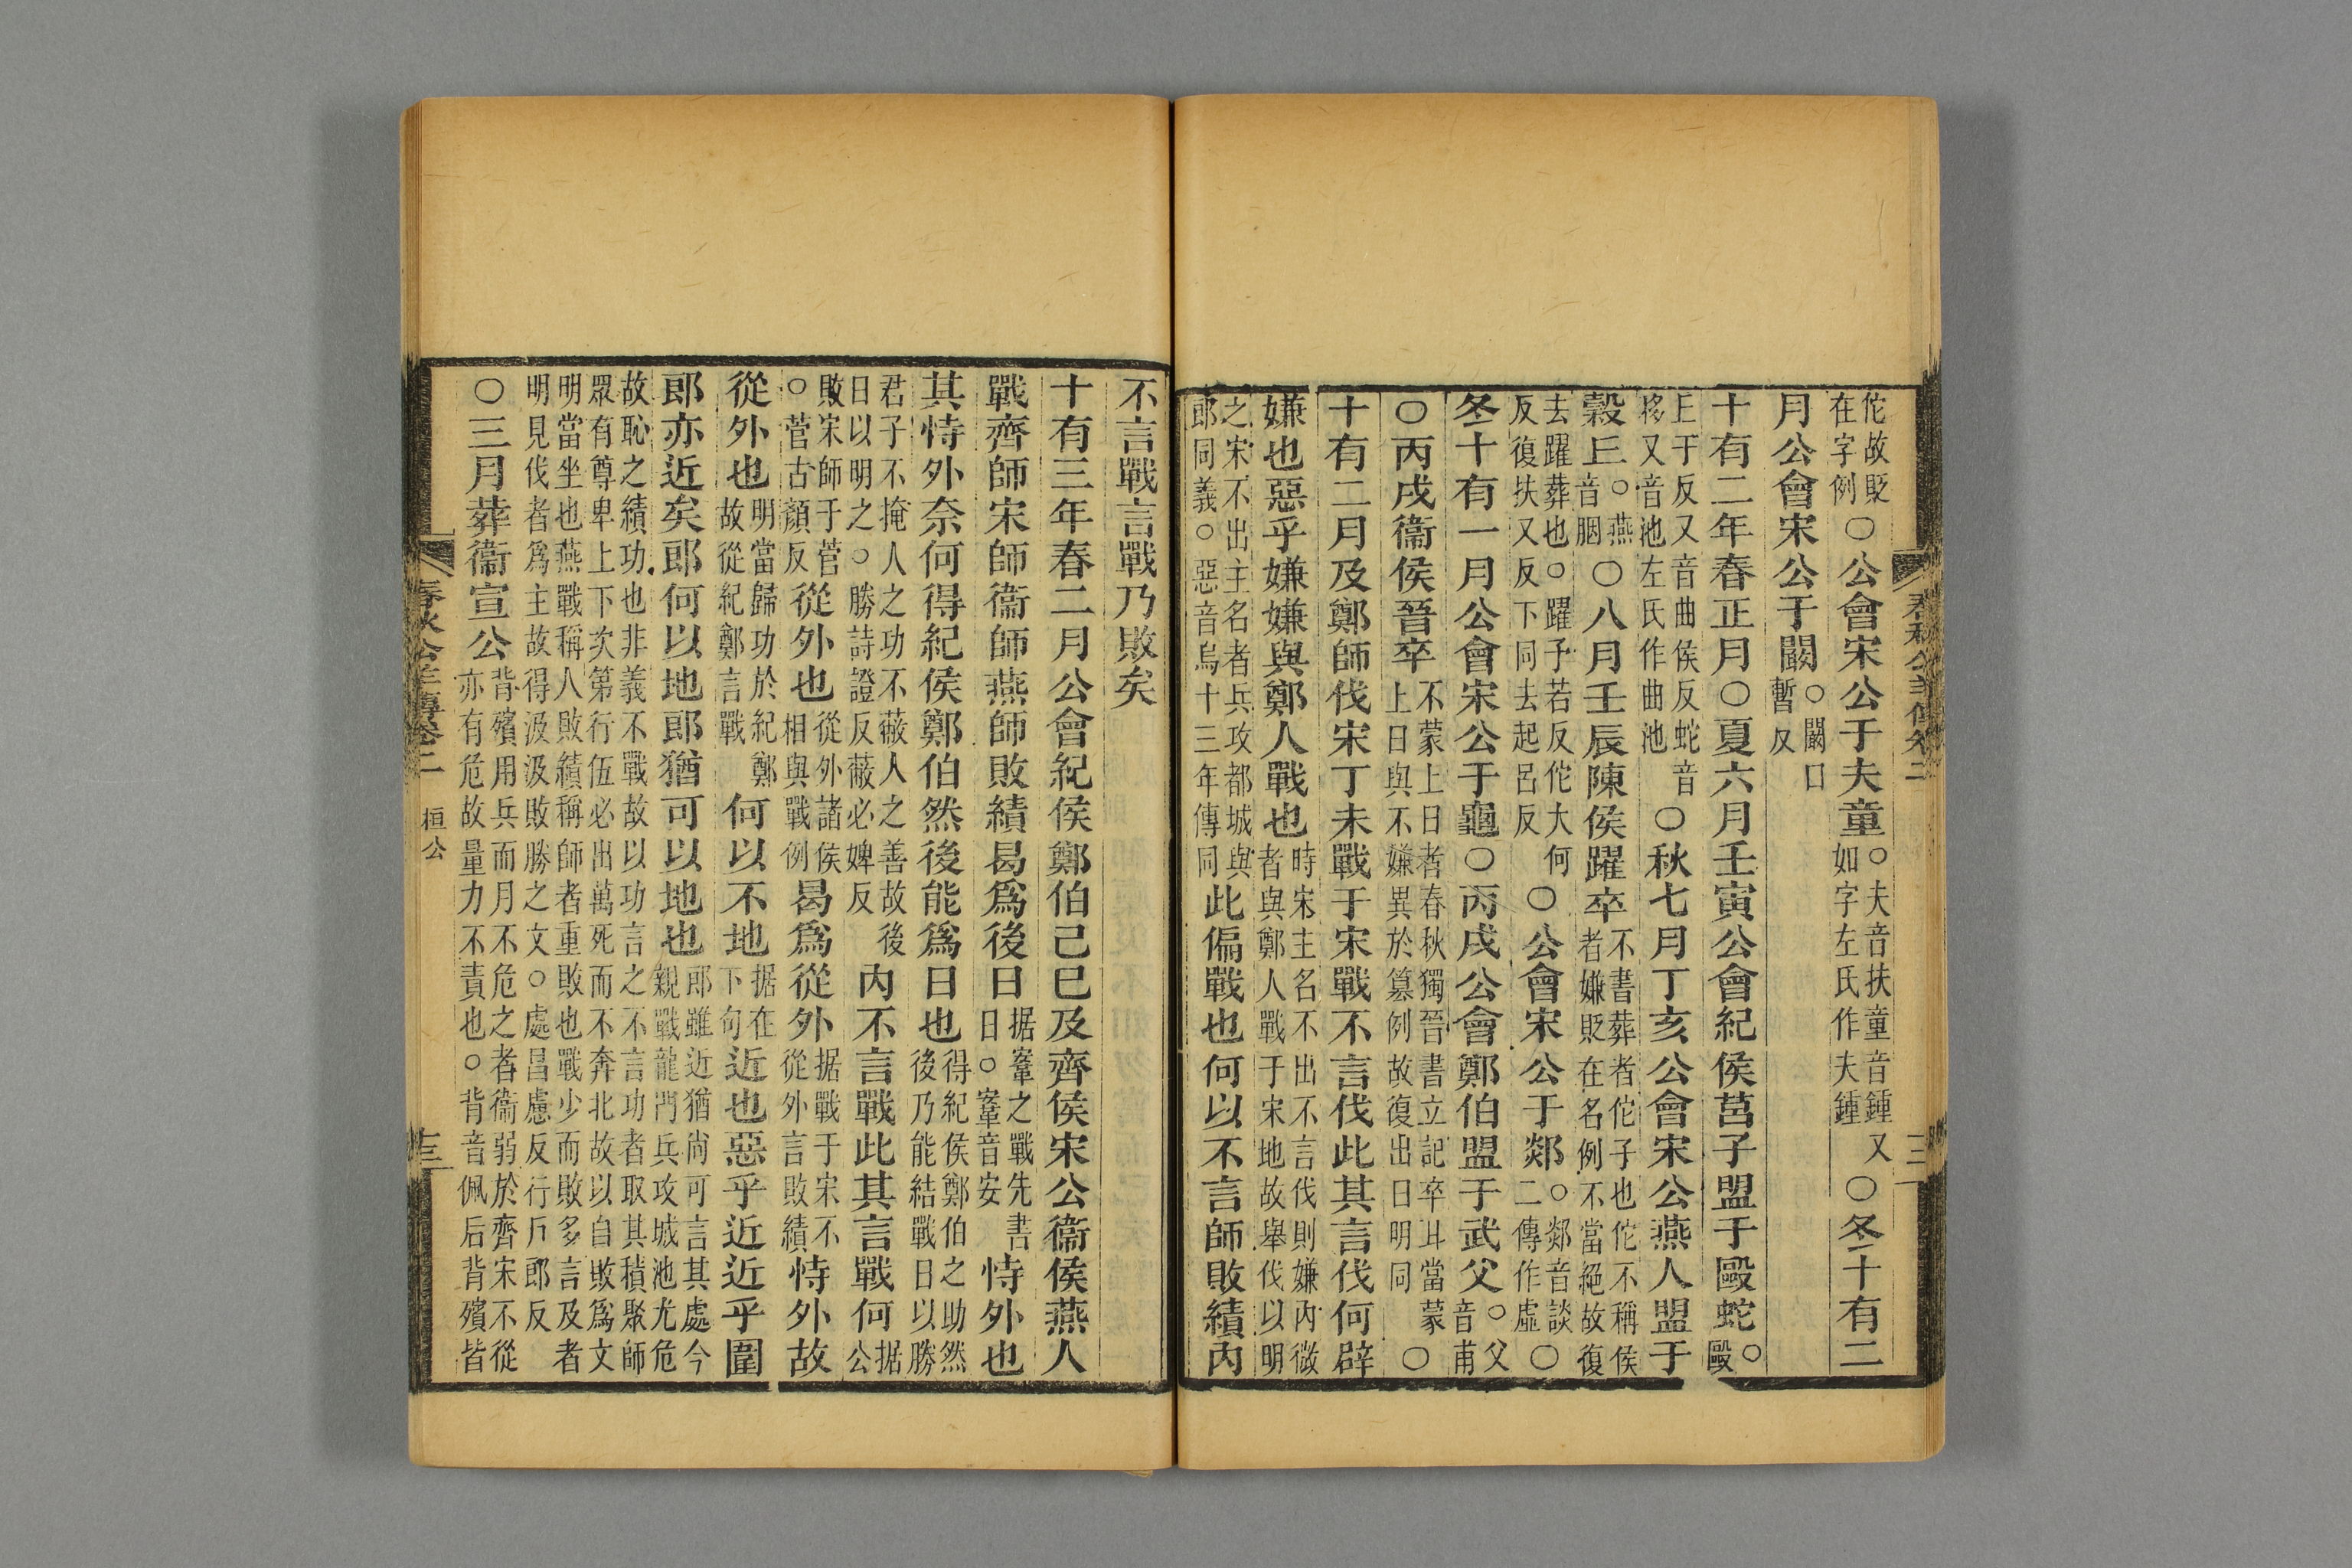 佗故貶在字例〇公會宋公于夫童○夫音扶童音鍾又如字左氏作夫鍾〇冬十有二
月公會宋公于闞○闞口暫反
十有二年春正月〇夏六月壬寅公會紀侯莒子盟于毆蛇○毆
丘于反又音曲侯反蛇音移又音池左氏作曲池〇秋七月丁亥公會宋公燕人盟于
穀丘○燕音胭〇八月壬辰陳侯躍卒不書葬者佗子也佗不稱侯者嫌貶在名例不當絕故復
去躍葬也○躍予若反佗大何反復扶又反下同去起呂反〇公會宋公于郯○郯音談二傳作虛〇
冬十有一月公會宋公于龜〇丙戌公會鄭伯盟于武父○父音甫
〇丙戌衞侯晉卒不蒙上日者春秋獨晉書立記卒耳當蒙上日與不嫌異於篡例故復出日明同〇
十有二月及鄭師伐宋丁未戰于宋戰不言伐此其言伐何辟
嫌也惡乎嫌嫌與鄭人戰也時宋主名不出不言伐則嫌內微者與鄭人戰于宋地故舉伐以明
之宋不出主名者兵攻都城與郎同義○惡音烏十三年傳同此偏戰也何以不言師敗績內
不言戰言戰乃敗矣
十有三年春二月公會紀侯鄭伯己巳及齊侯宋公衞侯燕人
戰齊師宋師衞師燕師敗績曷爲後日据鞌之戰先書日○鞌音安恃外也
其恃外奈何得紀侯鄭伯然後能爲日也得紀侯鄭伯之助然後乃能結戰日以勝
君子不掩人之功不蔽人之善故後日以明之○勝詩證反蔽必婢反內不言戰此其言戰何据公
敗宋師于菅○菅古顏反從外也從外諸侯相與戰例曷爲從外据戰于宋不從外言敗績恃外故
從外也明當歸功於紀鄭故從紀鄭言戰何以不地据在下句近也惡乎近近乎圍
郎亦近矣郎何以地郎猶可以地也郎雖近猶尚可言其處今親戰龍門兵攻城池尤危
故恥之績功也非義不戰故以功言之不言功者取其積聚師眾有尊卑上下次第行伍必出萬死而不奔北故以自敗爲文
明當坐也燕戰稱人敗績稱師者重敗也戰少而敗多言及者明見伐者爲主故得汲汲敗勝之文○處昌慮反行戶郎反
〇三月葬衞宣公背殯用兵而月不危之者衞弱於齊宋不從亦有危故量力不責也○背音佩后背殯皆
桓公